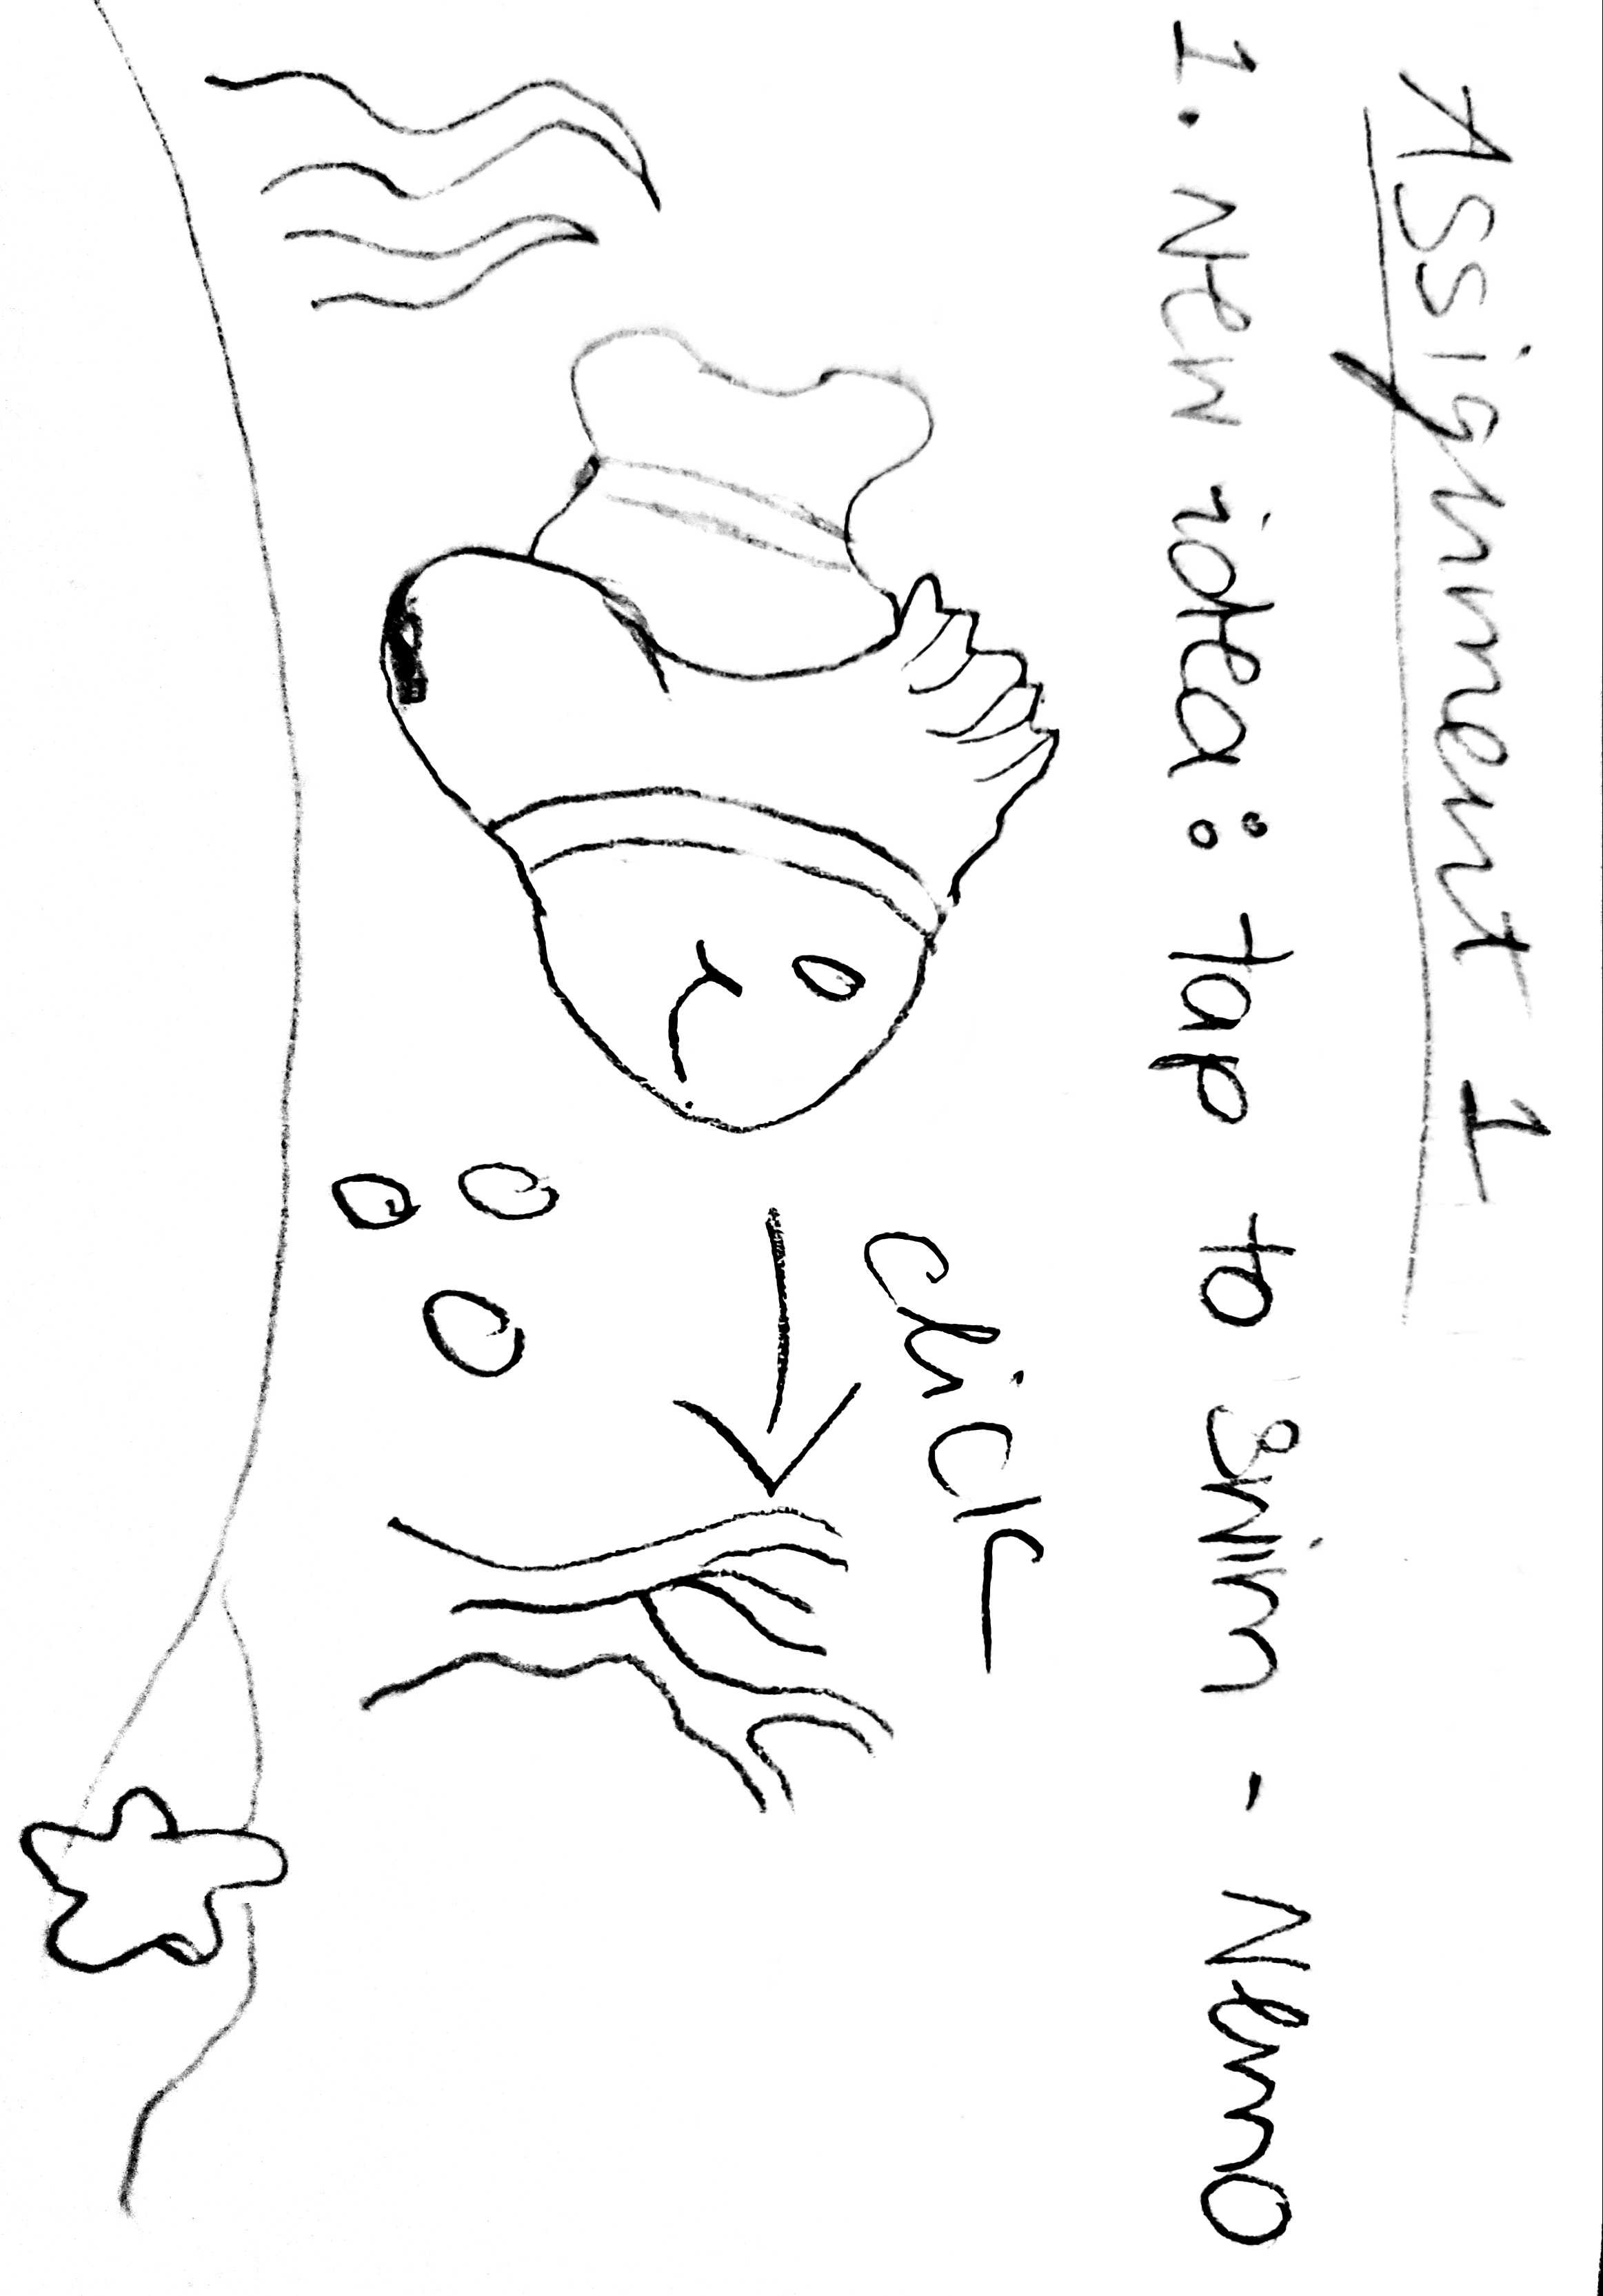 Assignment 1
1. New idea: tap to swim - Nemo
click